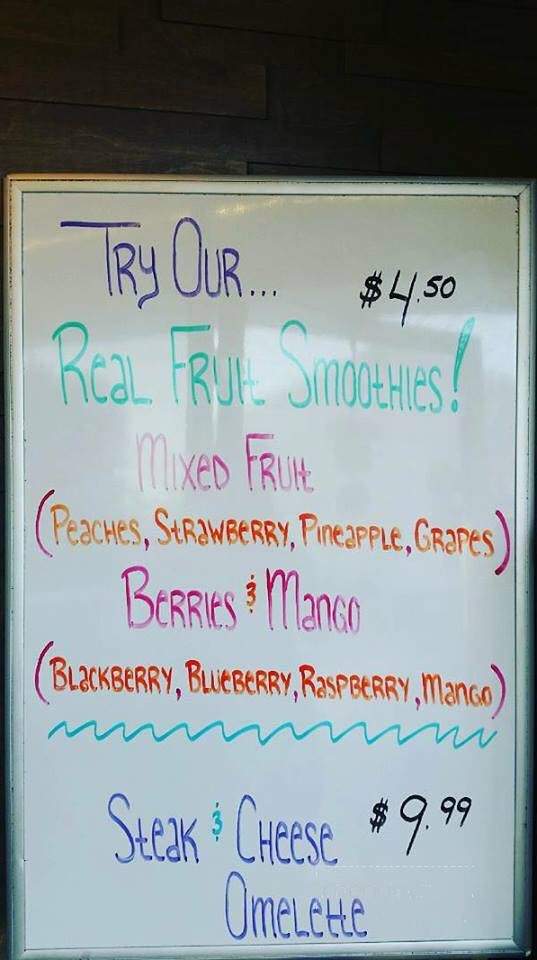 Try Our... $4.50
Real Fruit Smoothies!
Mixed Fruit
(Peaches, Strawberry, Pineapple, Grapes)
Berries & Mango
(Blackberry, Blueberry, Raspberry, Mango)
Steak & Cheese $9.99
Omelette